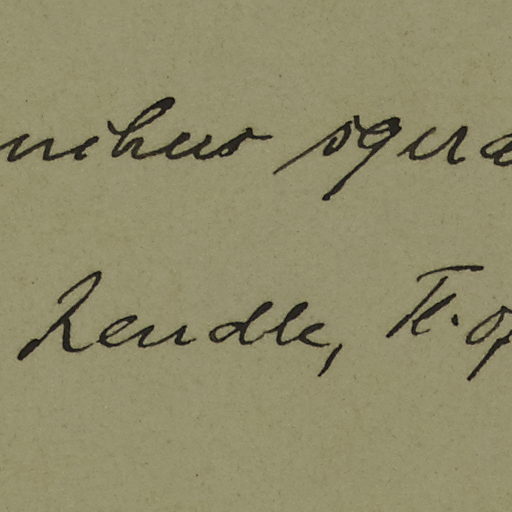 nchus squa
Rendle, Fl. of